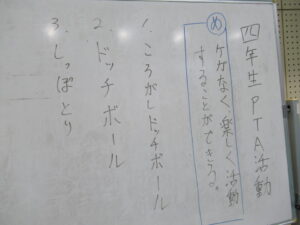 四年生PTA活動
め
ケガなく、楽しく活動
することができる。
1. ころがしドッチボール
2. ドッチボール
3. しっぽとり